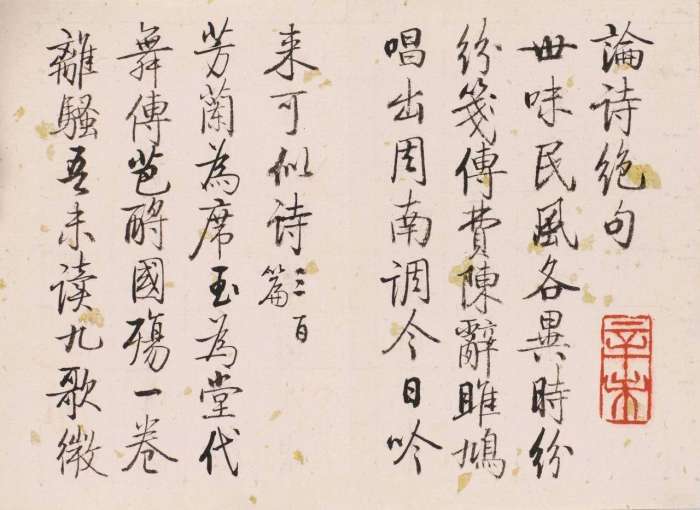 論诗絕句
世味民風各異時紛
紛箋傳費陳辭雎鳩
唱出周南调今日吟
来可似诗三百篇
芳蘭為席玉為堂代
舞傳芭酹國殤一卷
離騷吾未读九歌微
辛未